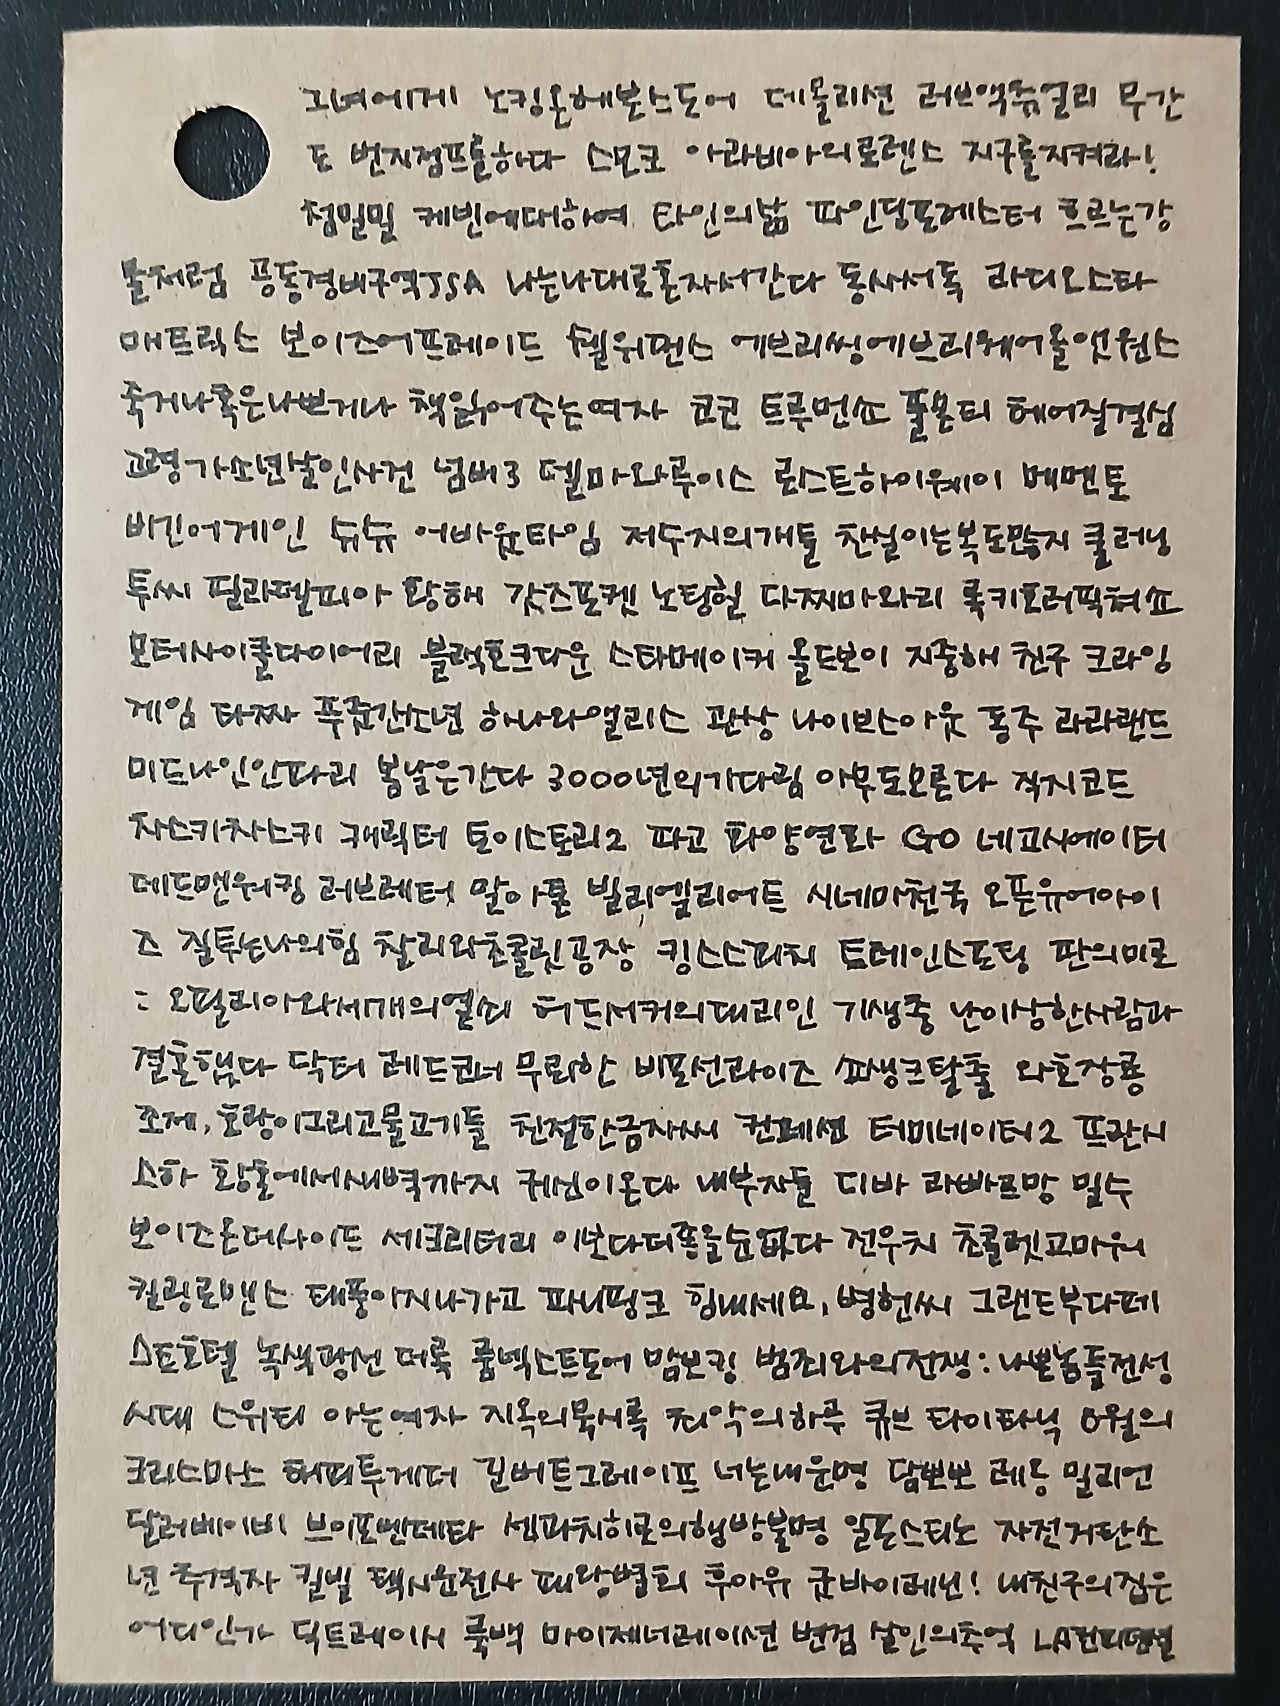 그녀에게 노킹온헤븐스도어 데몰리션 러브액츄얼리 무간
도 번지점프를하다 스모크 아라비아의로렌스 지구를지켜라!
첨밀밀 케빈에대하여 타인의삶 파인딩포레스터 흐르는강
물처럼 공동경비구역JSA 나는나대로혼자서간다 동사서독 라디오스타
매트릭스 보이즈어프레이드 텔위먼스 에브리씽에브리웨어올앳원스
죽거나혹은나쁘거나 책읽어주는여자 코코 트루먼쇼 풀몬티 헤어질결심
고령가소년살인사건 넘버3 델마와루이스 로스트하이웨이 메멘토
비긴어게인 슈슈 어바웃타임 저수지의개들 찬실이는복도많지 쿨러닝
투씨 필라델피아 황해 갓즈포켓 노팅힐 다찌마와리 록키호러픽쳐쇼
모터사이클다이어리 블랙호크다운 스타메이커 올드보이 지중해 친구 크라잉
게임 타짜 푸줏간소년 하나와앨리스 관상 나이브스아웃 동주 라라랜드
미드나잇인파리 봄날은간다 3000년의기다림 아무도모른다 적지코드
차스키차스키 캐릭터 토이스토리2 파고 화양연화 GO 네고시에이터
데드맨워킹 러브레터 말아톤 빌리엘리어트 시네마천국 오픈유어아이
즈 질투는나의힘 찰리와초콜릿공장 킹스스피치 트레인스포팅 판의미로
: 오필리아와세개의열쇠 허드서커의대리인 기생충 난이상한사람과
결혼했다 닥터 레드코너 무뢰한 비포선라이즈 쇼생크탈출 와호장룡
조제,호랑이그리고물고기들 친절한금자씨 컨페션 터미네이터2 프란시
스하 황혼에서새벽까지 귀신이온다 내부자들 디바 라빠르망 밀수
보이즈온더사이드 세크리터리 이보다더좋을순없다 전우치 초콜렛고마워
킬링로맨스 태풍이지나가고 파니핑크 힘내세요,병헌씨 그랜드부다페
스트호텔 녹색광선 더록 룸넥스트도어 맘보킹 범죄와의전쟁:나쁜놈들전성
시대 스위티 아는여자 지옥의묵시록 최악의하루 큐브 타이타닉 8월의
크리스마스 해피투게더 길버트그레이프 너는내운명 담뽀뽀 레옹 밀리언
달러베이비 브이포벤데타 센과치히로의행방불명 일포스티노 자전거탄소
년 추격자 킬빌 택시운전사 패왕별희 후아유 굿바이레닌! 내친구의집은
어디인가 딕트레이시 룩백 마이제너레이션 변검 살인의추억 LA컨피덴셜